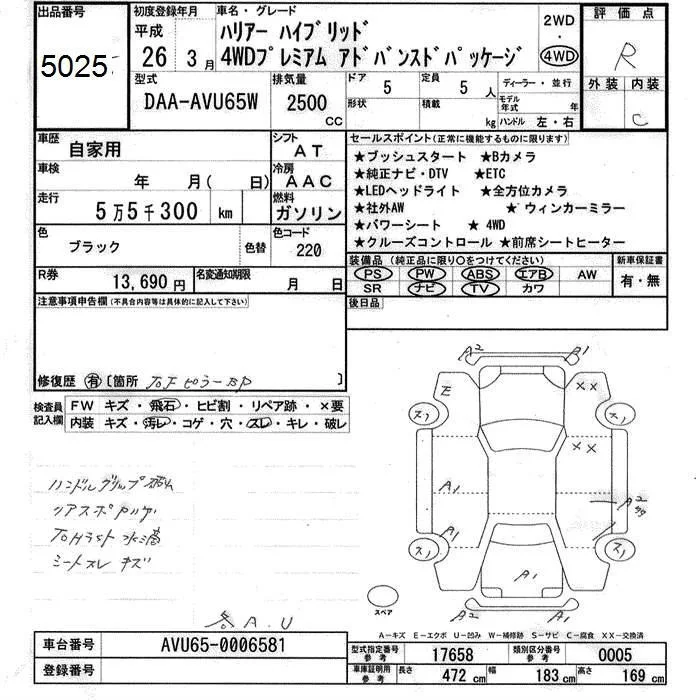 出品番号
5025
初度登録年月
平成
26 3月
車名・グレード
ハリアー ハイブリッド
4WDプレミアム アドバンスドパッケージ
2WD
・
4WD
評価点
R
外装 内装
C
型式
DAA-AVU65W
排気量
2500
CC
ドア
5
定員
5 人
形状
積載
kg
ディーラー・並行
モデル年式 年
ハンドル 左・右
車歴
自家用
シフト
AT
車検
年 月( 日)
冷房
AAC
走行
5万5千300 km
燃料
ガソリン
色
ブラック
色替
色コード
220
R券
13,690円
名変通知期限
月 日
セールスポイント(正常に機能するものに限ります)
★プッシュスタート ★Bカメラ
★純正ナビ・DTV ★ETC
★LEDヘッドライト ★全方位カメラ
★社外AW ★ウィンカーミラー
★パワーシート ★4WD
★クルーズコントロール ★前席シートヒーター
装備品 (純正品に限り○をつけてください)
PS PW ABS エアB AW
SR ナビ TV カワ
新車保証書
有・無
後日品
注意事項申告欄(不具合内容等は具体的に記入して下さい)
修復歴 有 〔箇所 ピラー 〕
検査員
記入欄
FW キズ・飛石・ヒビ割・リペア跡・×要
内装 キズ・汚レ・コゲ・穴・スレ・キレ・破レ
ハンドルグリップ
シートスレ キズ
各A.U
A2 A1
E XX
XX
A1 A2
A1
A1
A2 A1
スペア
A－キズ E－エクボ U－凹み W－補修跡 S－サビ C－腐食 XX－交換済
車台番号
AVU65-0006581
登録番号
型式指定番号
参考
17658
類別区分番号
参考
0005
車庫証明用
参考
長さ 472 cm 幅 183 cm 高さ 169 cm